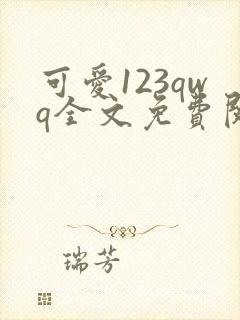 可愛123qw
q全文免費閱
瑞芳